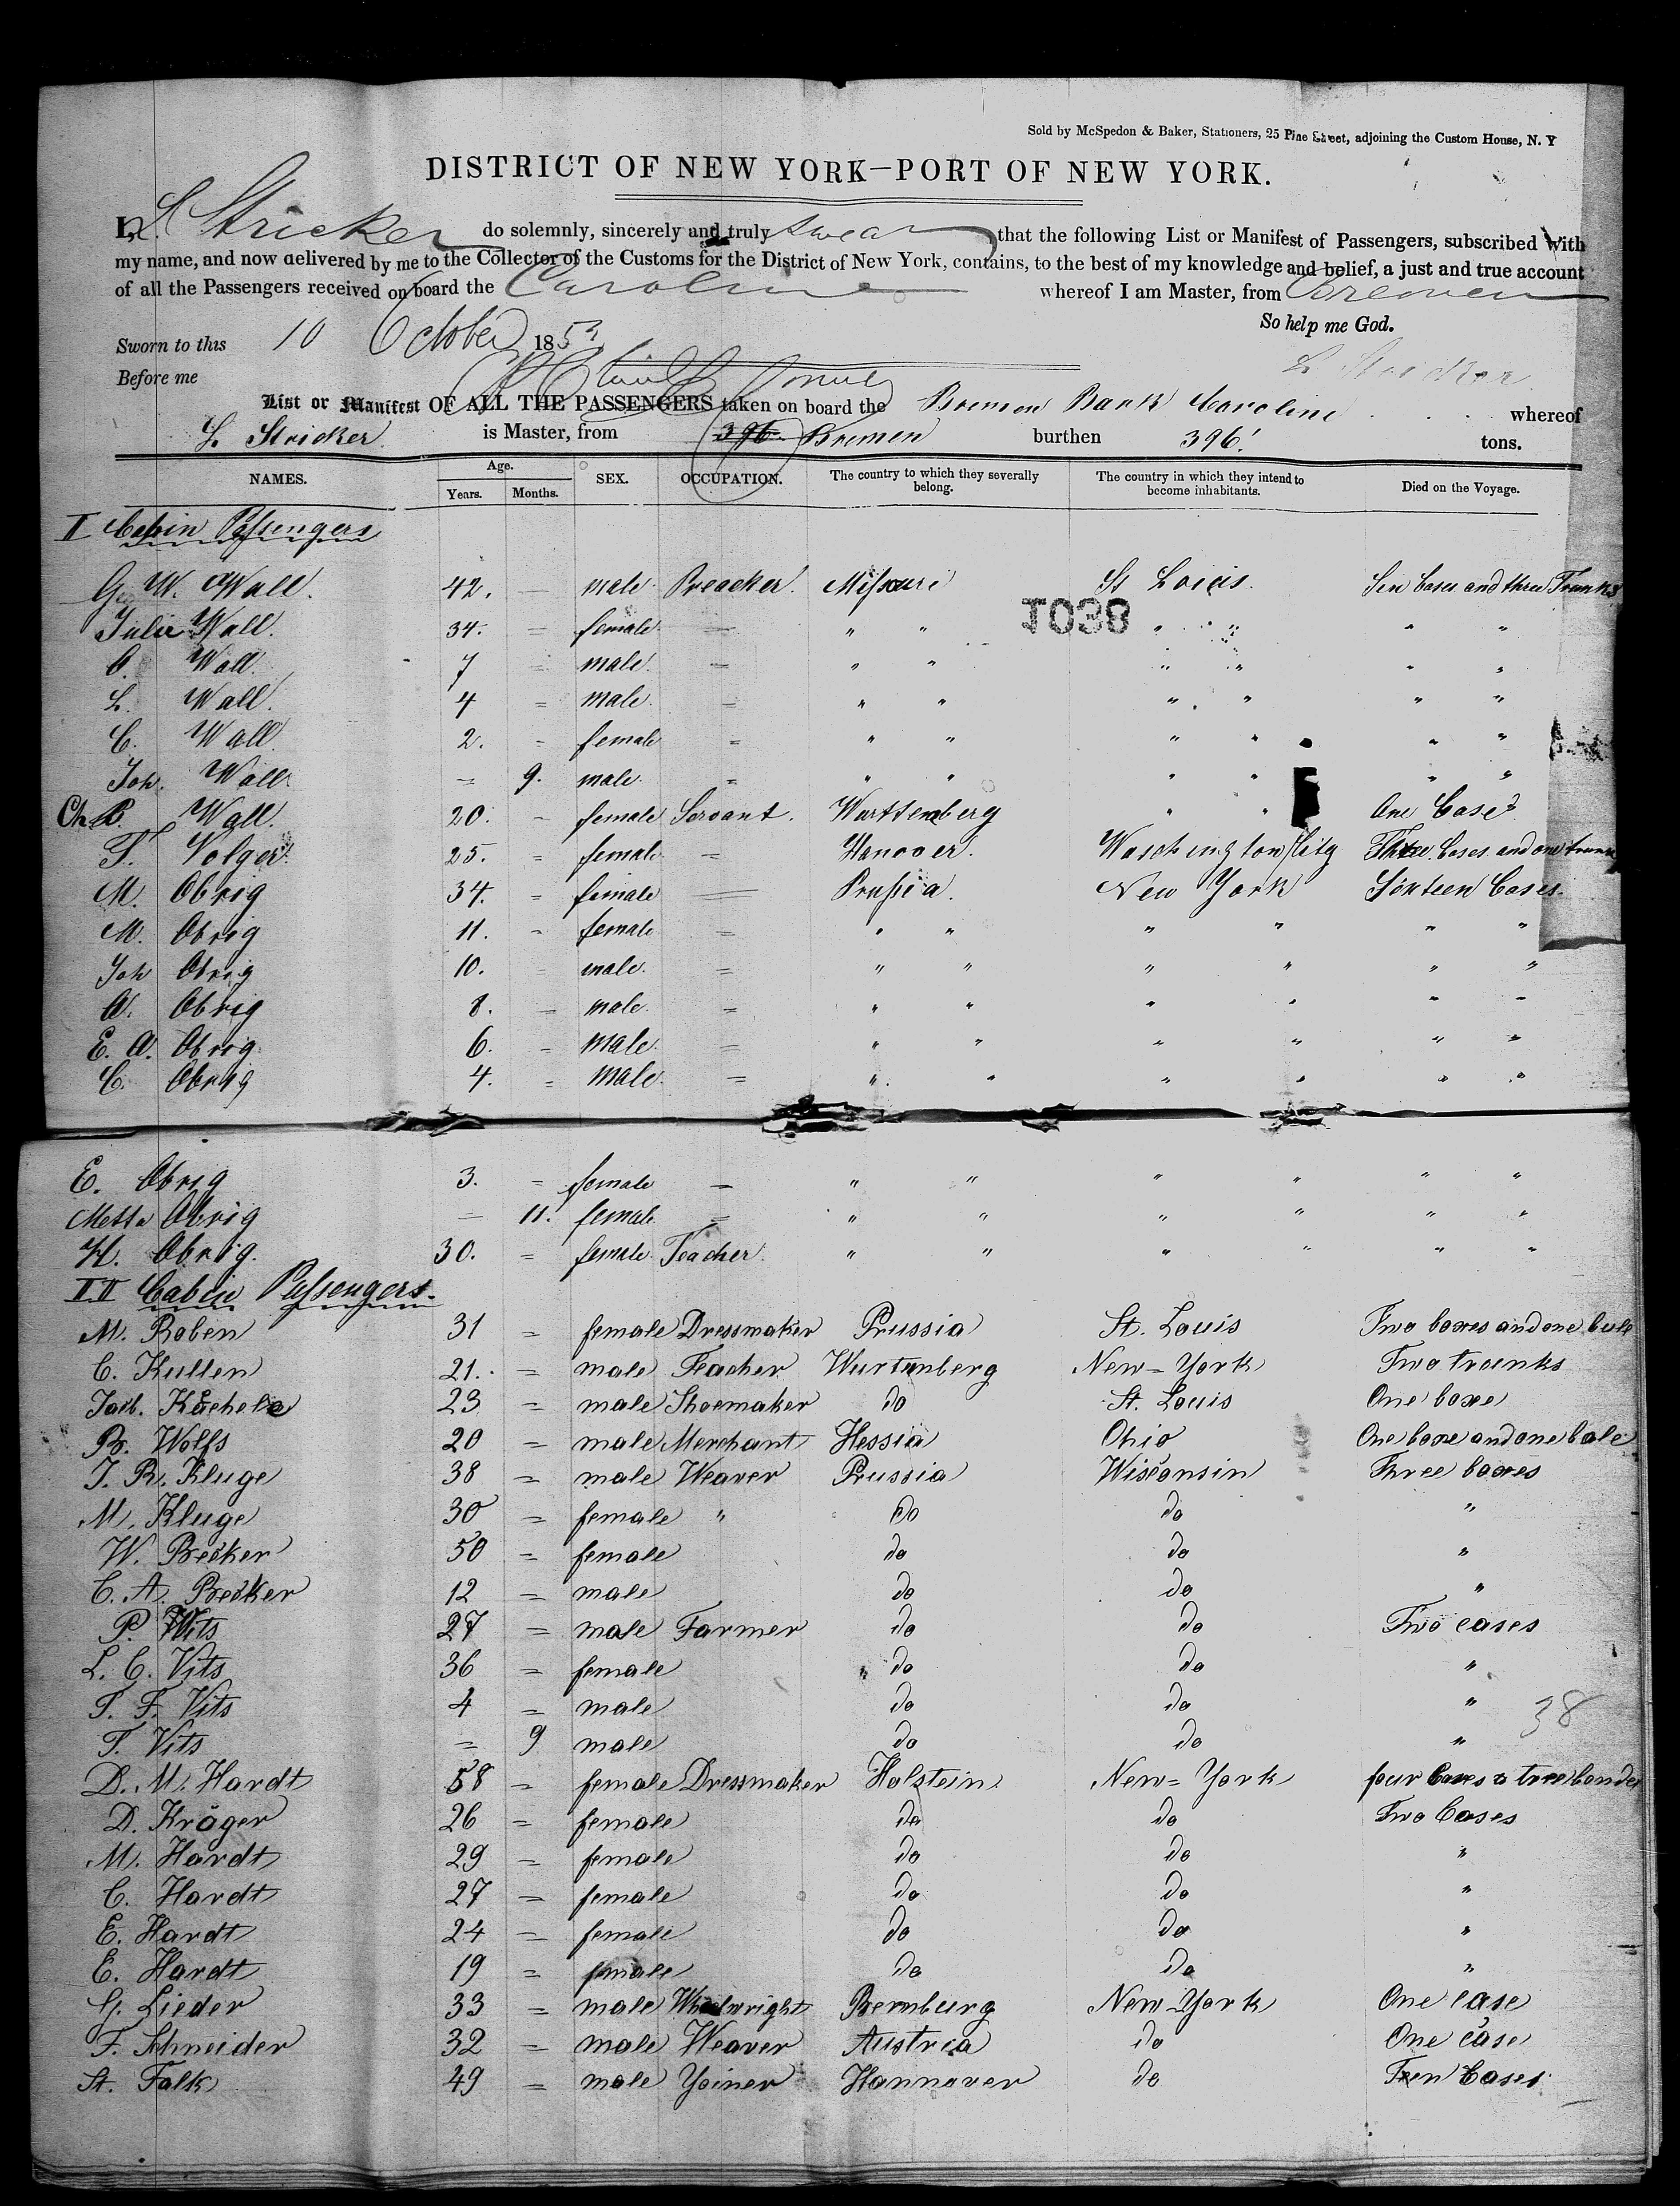 Sold by McSpedon & Baker, Stationers, 25 Pine Street, adjoining the Custom House, N. Y
DISTRICT OF NEW YORK—PORT OF NEW YORK.
I, L Stricker do solemnly, sincerely and truly swear that the following List or Manifest of Passengers, subscribed with
my name, and now delivered by me to the Collector of the Customs for the District of New York, contains, to the best of my knowledge and belief, a just and true account
of all the Passengers received on board the Caroline whereof I am Master, from Bremen
So help me God.
Sworn to this 10 October 1853
L Stricker
Before me
List or Manifest OF ALL THE PASSENGERS taken on board the Bremen Bark Caroline whereof
L. Stricker is Master, from 396. Bremen burthen 396. tons.
NAMES. Age. Years. Months. SEX. OCCUPATION. The country to which they severally belong. The country in which they intend to become inhabitants. Died on the Voyage.
I Cabin Passengers
G. W. Wall. 42. — male. Preacker. Missouri St Louis. Ten Cases and three Trunks
Julie Wall. 34. = female — " " " " " "
O. Wall. 7 = male. = " " " " " "
L. Wall. 4 = male. = " " " " " "
C. Wall 2. = female = " " " " " "
Joh. Wall. = 9. male. = " " " " " "
Ch. B. Wall. 20. - female Servant. Wurttemberg " " One Case
T. Volger. 25. = female = Hanover. Waschington City Three Cases and one trunk
M. Obrig 34. = female = Prussia. New York Sixteen Cases.
M. Obrig 11. = female = " " " " " "
Joh Obrig 10. = male. = " " " " " "
A. Obrig 8. = male. = " " " " " "
E. A. Obrig 6. = male. = " " " " " "
C. Obrig 4. = male. = " " " " " "
TO38
E. Obrig 3. = female = " " " " " "
Metta Obrig = 11. female = " " " " " "
H. Obrig. 30. = female. Teacher. " " " " " "
II Cabin Passengers.
M. Roben 31 = female Dressmaker Prussia St. Louis Two boxes and one bale
C. Kullen 21. = male Teacher Wurtenberg New=York Two trunks
Jacb. Köchele 23 = male Shoemaker do St. Louis One boxe
B. Wolfs 20 = male Merchant Hessia Ohio One boxe and one bale
J. R. Kluge 38 = male Weaver Prussia Wisconsin Three boxes
M. Kluge 30 = female " do do "
W. Becker 50 = female do do "
C. A. Becker 12 = male do do "
P. Vits 27 = male Farmer do do Two cases
L. C. Vits 36 = female " do do "
P. F. Vits 4 = male do do "
T. Vits = 9 male do do "
38
D. M. Hardt 58 = female Dressmaker Holstein New=York four
D. Kröger 26 = female do do Two Cases
M. Hardt 29 = female do do "
C. Hardt 27 = female do do "
E. Hardt 24 = female do do "
E. Hardt 19 = female do do "
G. Lieder 33 = male Wheelwright Bernburg New York One case
F. Schneider 32 = male Weaver Austria do One case
St. Falk 49 = male Yoiner Hannover do Cases